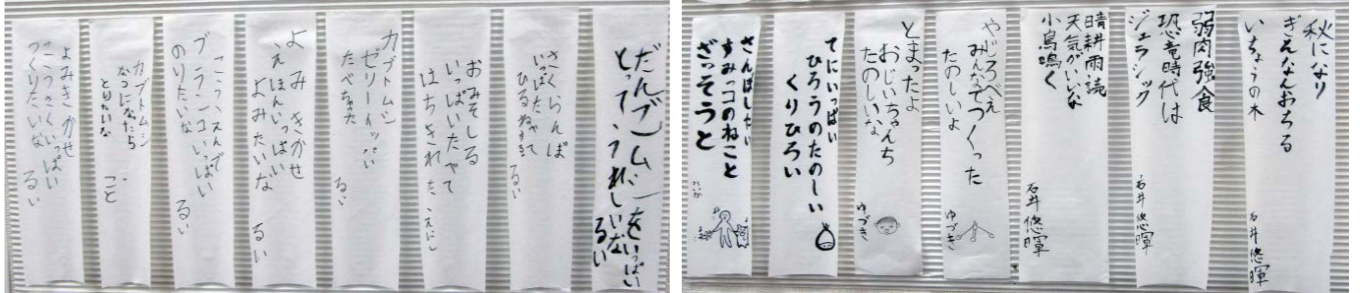 だんゴムしを
いっぱい
とって
うれしいな
るい
さくらんぼ
いっぱいたべて
ひるねする
るい
おみそしる
いっぱいたべて
はちきれた
えにし
カブトムシ
ゼリーいっぱい
たべちゃった
るい
よみきかせ
えほんいっぱい
よみたいな
るい
こうえんで
ブランコいっぱい
のりたいな
るい
カブトムシ
なつになったら
とりたいな
こと
よみきかせ
いっぱい
つくりたいな
るい
秋になり
ぎんなんおちる
いちょうの木
石井悠暉
弱肉強食
恐竜時代は
ジュラシック
石井悠暉
晴耕雨読
天気がいいな
小鳥鳴く
石井悠暉
やじろべえ
みんなでつくった
たのしいよ
ゆづき
とまったよ
おじいちゃんち
たのしいな
ゆづき
てにいっぱい
ひろうのたのしい
くりひろい
さんぽしたい
すみっコのねこと
ざっそうと